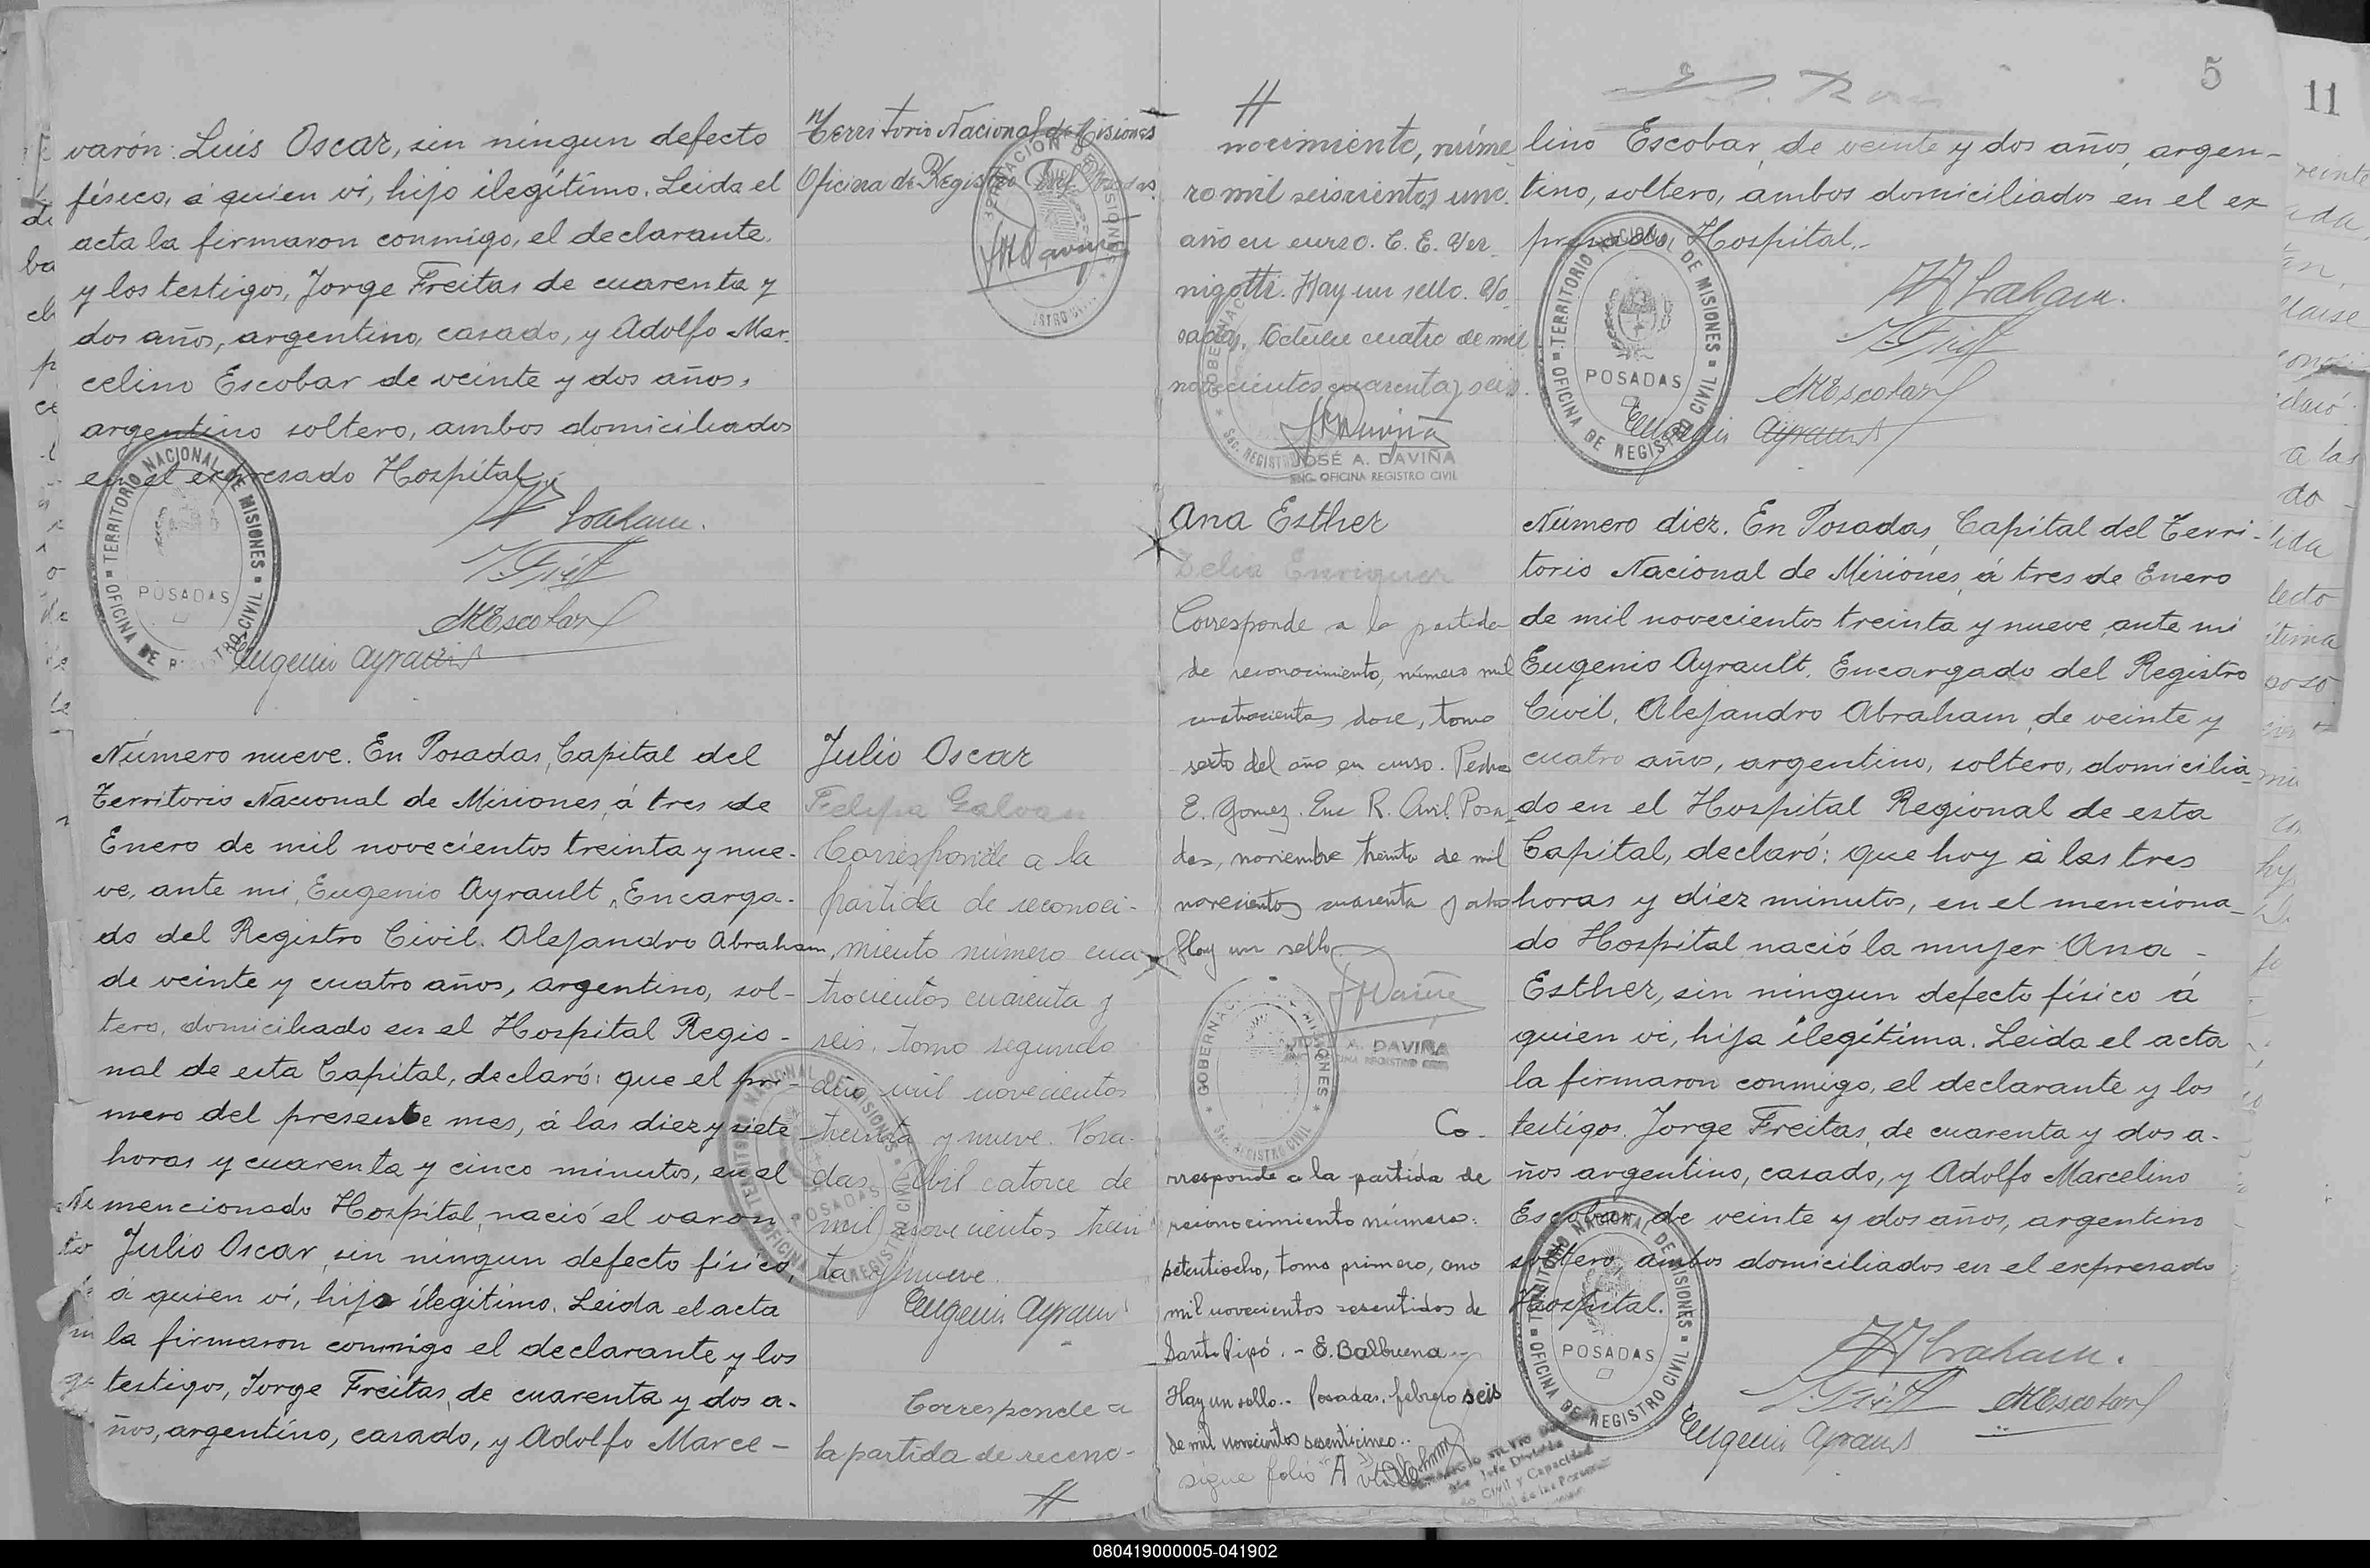 varón: Luis Oscar, sin ningun defecto
físico, á quien ví, hijo ilegítimo. Leida el
acta la firmaron conmigo, el declarante.
y los testigos, Jorge Freitas de cuarenta y
dos años, argentino, casado, y Adolfo Mar-
celino Escobar de veinte y dos años,
argentino soltero, ambos domiciliados
en el expresado Hospital.
TERRITORIO NACIONAL DE MISIONES
OFICINA DE REGISTRO CIVIL
POSADAS
Abraham.
MEscobar
Eugenio Ayrault
Territorio Nacional de Misiones
Oficina de Registro Civil Posadas.
JADaviña
Número nueve. En Posadas, Capital del
Territorio Nacional de Misiones, á tres de
Enero de mil novecientos treinta y nue-
ve, ante mi, Eugenio Ayrault, Encarga-
do del Registro Civil. Alejandro Abraham,
de veinte y cuatro años, argentino, sol-
tero, domiciliado en el Hospital Regio-
nal de esta Capital, declaró: que el pri-
mero del presente mes, á las diez y siete
horas y cuarenta y cinco minutos, en el
mencionado Hospital, nació el varon
Julio Oscar, sin ningun defecto físico,
á quien ví, hijo ilegítimo. Leida el acta
la firmaron conmigo el declarante y los
testigos, Jorge Freitas, de cuarenta y dos a-
ños, argentino, casado, y Adolfo Marce-
Julio Oscar
Felipa Galvan
Corresponde a la
partida de reconoci-
miento número cua-
trocientos cuarenta y
seis, tomo segundo
año mil novecientos
treinta y nueve. Posa-
das, Abril catorce de
mil novecientos trein
ta y nueve.
Eugenio Ayrault
Corresponde a
la partida de recono-
#
#
nocimiento, núme
ro mil seiscientos uno.
año en curso. C. E. Ver-
nigotti. Hay un sello. Po-
sadas, Octubre cuatro de mil
novecientos cuarenta y seis.
JADaviña
JOSÉ A. DAVIÑA
ENC. OFICINA REGISTRO CIVIL
Ana Esther
Delia Enriquez
Corresponde a la partida
de reconocimiento, número mil
cuatrocientos doce, tomo
sexto del año en curso. Pedro
E. Gomez. Enc R. Civil. Posa-
das, noviembre treinta de mil
novecientos cuarenta y ocho
Hay un sello
JADaviña
A. DAVIÑA
Co-
rresponde a la partida de
reconocimiento número:
setentiocho, tomo primero, año
mil novecientos sesentidos de
Santo Pipó. - E. Balbuena -
Hay un sello.- Posadas, febrero seis
de mil novecientos sesenticinco.-
sigue folio "A"
5
11
lino Escobar, de veinte y dos años, argen-
tino, soltero, ambos domiciliados en el ex
presado Hospital.-
TERRITORIO NACIONAL DE MISIONES
OFICINA DE REGISTRO CIVIL
POSADAS
Abraham.
MEscobar
Eugenio Ayrault
Número diez. En Posadas, Capital del Terri-
torio Nacional de Misiones, á tres de Enero
de mil novecientos treinta y nueve, ante mi
Eugenio Ayrault, Encargado del Registro
Civil, Alejandro Abraham, de veinte y
cuatro años, argentino, soltero, domicilia-
do en el Hospital Regional de esta
Capital, declaró: que hoy á las tres
horas y diez minutos, en el menciona-
do Hospital nació la mujer Ana -
Esther, sin ningun defecto físico á
quien ví, hija ilegítima. Leida el acta
la firmaron conmigo, el declarante y los
testigos. Jorge Freitas, de cuarenta y dos a-
ños argentino, casado, y Adolfo Marcelino
Escobar, de veinte y dos años, argentino
soltero, ambos domiciliados en el expresado
Hospital.
TERRITORIO NACIONAL DE MISIONES
OFICINA DE REGISTRO CIVIL
POSADAS
Abraham.
MEscobar
Eugenio Ayrault
080419000005-041902